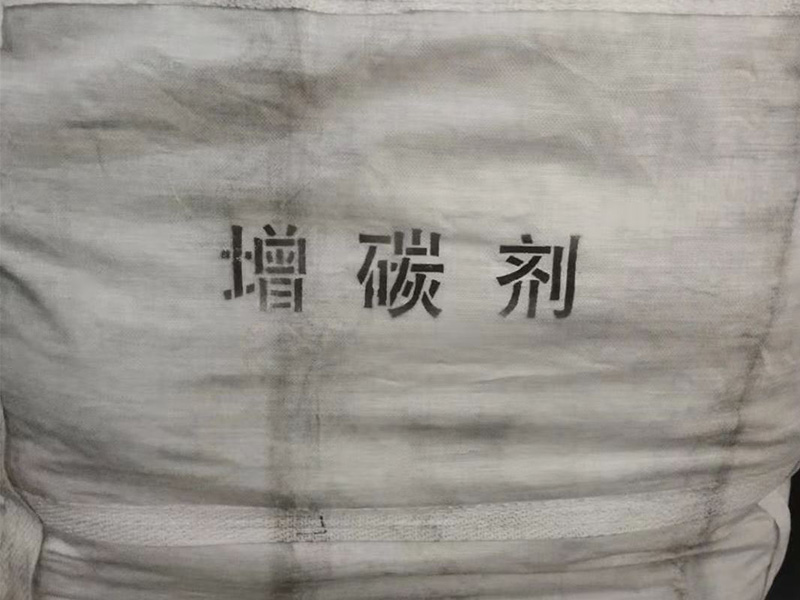 增碳剂